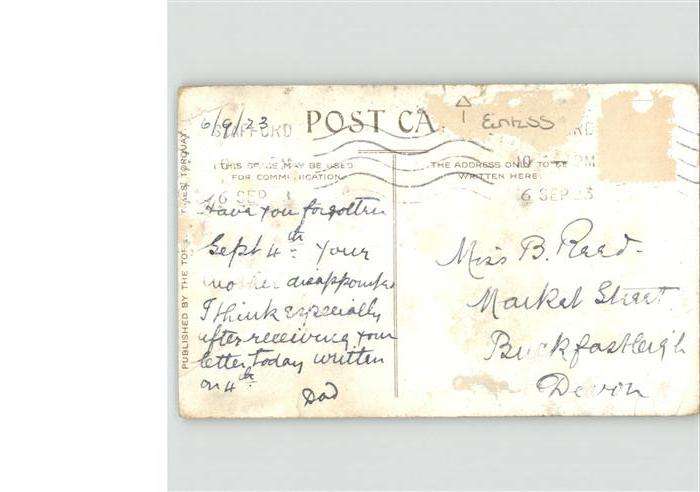 6/9/23
POST CA
STAFFORD
THIS SPACE MAY BE USED
FOR COMMUNICATION
THE ADDRESS ONLY TO BE
WRITTEN HERE
10 PM
6 SEP
6 SEP 23
Have you forgotten
Sept 4th Your
mother disappointed
I think especially
after receiving your
letter today written
on 4th
Dad
Miss B. Reed
Market Street
Buckfastleigh
Devon
PUBLISHED BY THE TORQUAY